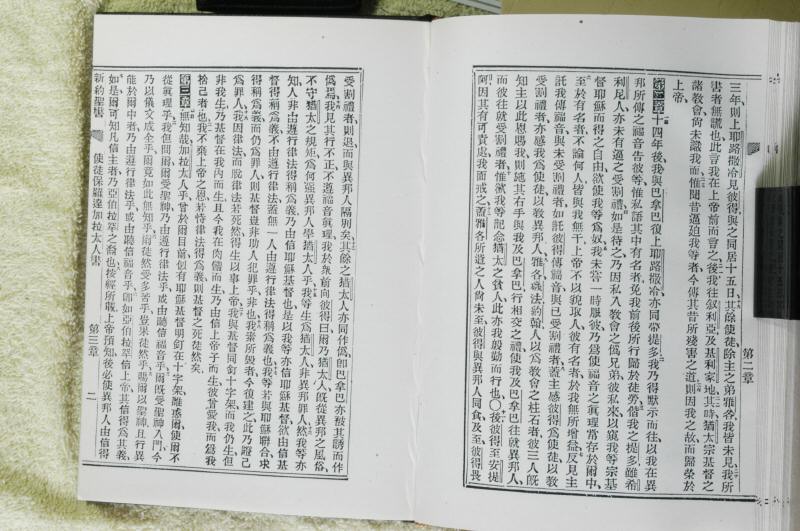 第二章
三年、則上耶路撒冷見彼得、與之同居十五日、其餘使徒、除主之弟雅各、我皆未見、我所
書者無謊也、此言我在上帝前而言之、後我往叙利亞及基利家地、其時、猶太宗基督之
諸敎會、尙未識我面、惟聞昔逼迫我等者、今傳其昔所殘害之道、則因我之故而歸榮於
上帝、
第二章 十四年後、我與巴拿巴復上耶路撒冷、亦同帶提多、我乃得默示而往、以我在異
邦所傳之福音告彼等、惟私語其中有名者、免我前後所行歸於徒勞、偕我之提多、雖希
利尼人、亦未有逼之受割禮、如是待之、乃因私入敎會之僞兄弟、彼私來以窺我等宗基
督耶穌而得之自由、欲使我等爲奴、我未嘗一時服彼、乃爲使福音之眞理常存於爾中、
至於有名者、不論何人、皆與我無干、上帝不以貌取人、彼有名者於我無所增益、反見主
託我傳福音與未受割禮者、如託彼得傳福音與已受割禮者、蓋主感彼得爲使徒以敎
受割禮者、亦感我爲使徒以敎異邦人、雅各磯法約翰、人以爲敎會之柱石者、彼三人旣
知主以此恩賜我、則施其右手與我及巴拿巴、行相交之禮、使我及巴拿巴往就異邦人、
而彼往就受割禮者、惟欲我等記念猶太之貧人、此亦我殷勤而行也、〇後彼得至安提
阿、因其有可責處、我面而戒之、蓋雅各所遣之人尙未至、彼得與異邦人同食、及至、彼得畏
受割禮者、則退而與異邦人隔別矣、其餘之猶太人亦同作僞、卽巴拿巴亦被其誘而作
僞焉、我見其行不正、不遵福音眞理、我於衆前向彼得曰、爾乃猶太人、旣從異邦之風俗、
不守猶太之規矩、爲何强異邦人學猶太人乎、我等生爲猶太人、非異邦罪人、然我等亦
知人非由遵行律法得稱爲義、乃由信耶穌基督也、是以我等亦信耶穌基督、欲由信基
督得稱爲義、不由遵行律法、蓋無一人由遵行律法得稱爲義也、我等若與耶穌聯合求
得稱爲義、而仍爲罪人、則基督豈非助人犯罪乎、非也、我素所毀者、今復建之、此乃證己
爲罪人、我因律法而脫律法、若死然、得生以事上帝、我與基督同釘十字架、而我仍生、但
非我生、乃基督在我內而生、且今我在肉體而生、乃由信上帝子而生、彼曾愛我、而爲我
捨己者也、我不廢上帝之恩、若恃律法爲義、則基督之死徒然矣、
第三章 無知哉加拉太人乎、曾於爾目前刻有耶穌基督明釘在十字架、誰惑爾使爾不
從眞理乎、我但問爾、爾受聖神、乃由遵行律法乎、或由聽信福音乎、爾旣受聖神入門、今
乃以儀文成全乎、爾竟如此無知乎、爾徒然受多苦乎、豈果徒然乎、賜爾以聖神、且行異
能於爾中者、乃由遵行律法乎、或由聽信福音乎、卽如亞伯拉罕信上帝、其信得爲其義、
如是爾可知凡信主者、乃亞伯拉罕之裔也、按經所載、上帝預知後必使異邦人由信得
新約聖書 使徒保羅達加拉太人書 第三章 二